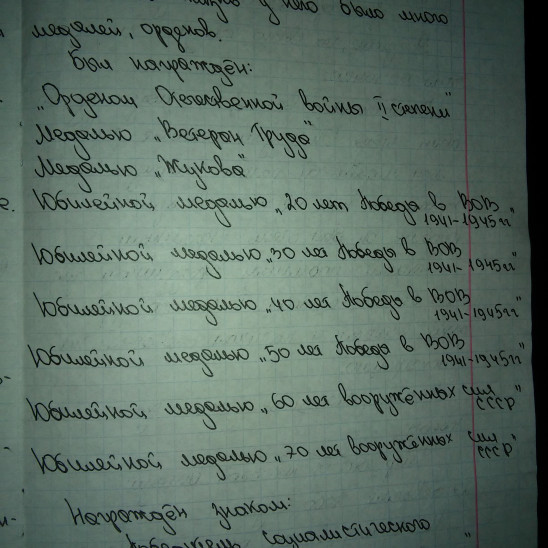 у него было много
медалей, орденов.
Был награждён:
„Орденом Отечественной войны II степени"
Медалью „Ветеран Труда"
Медалью „Жукова"
Юбилейной медалью „20 лет Победы в ВОВ 1941-1945гг"
Юбилейной медалью „30 лет Победы в ВОВ 1941-1945гг"
Юбилейной медалью „40 лет Победы в ВОВ 1941-1945гг"
Юбилейной медалью „50 лет Победы в ВОВ 1941-1945гг"
Юбилейной медалью „60 лет вооружённых сил СССР"
Юбилейной медалью „70 лет вооружённых сил СССР"
Награждён знаком:
социалистического "